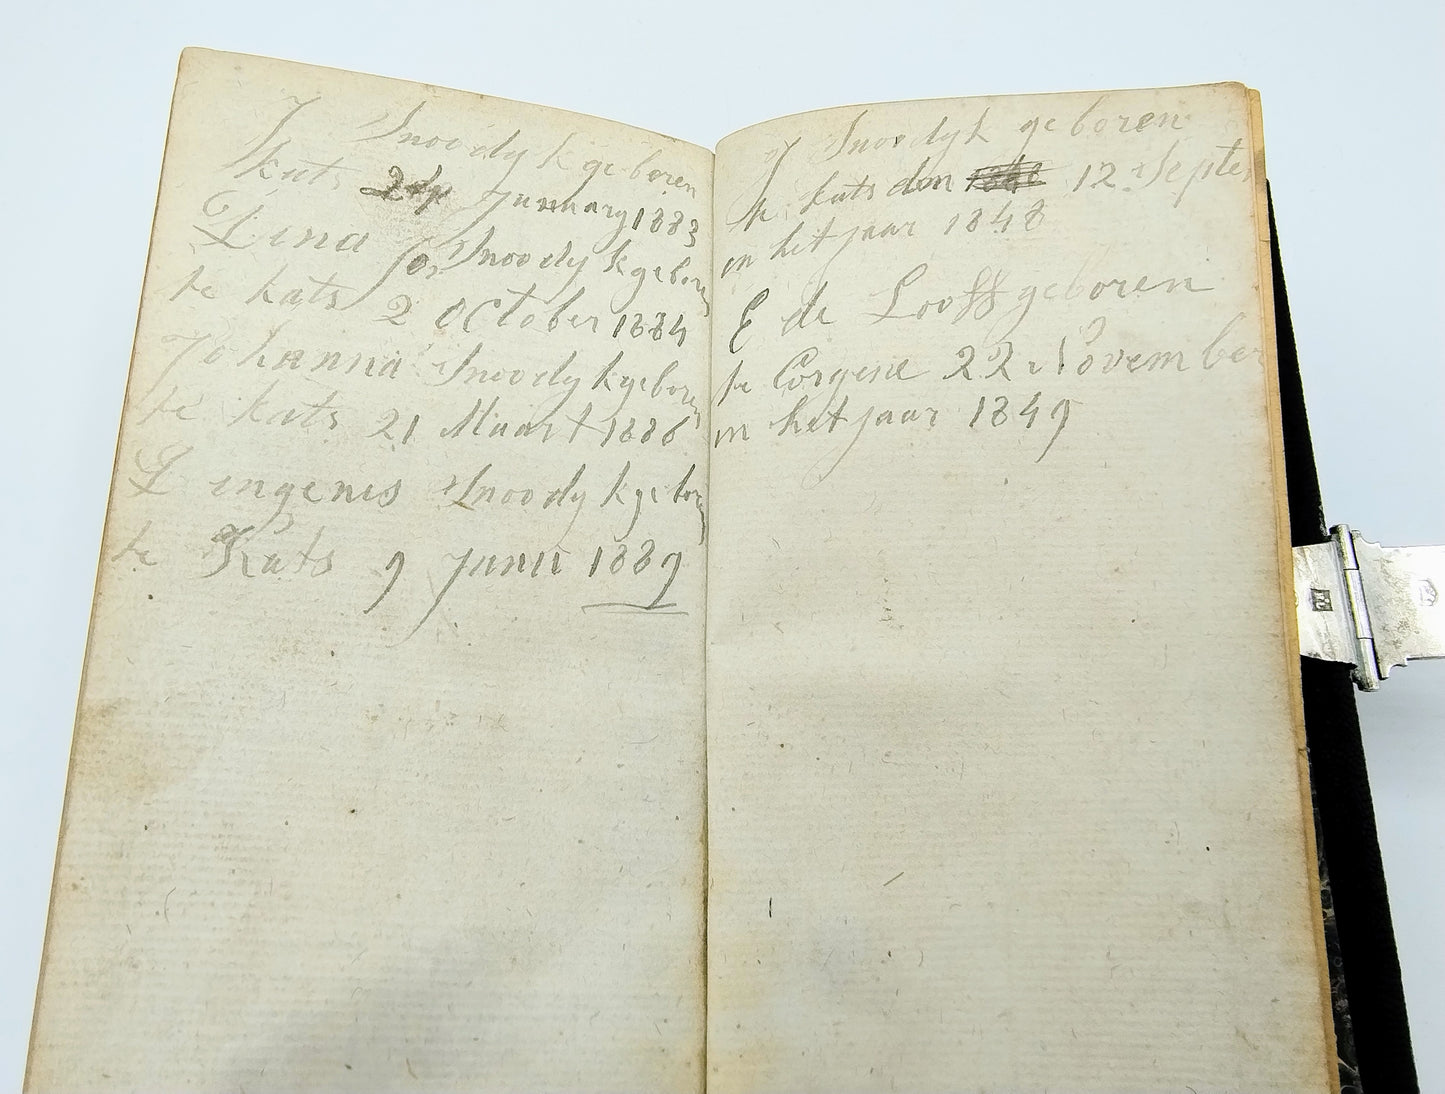 J Snoodyk geboren
kats 24 Januarij 1883
Lina Snoodyk geboren
te kats 2 October 1884
Johanna Snoodyk geboren
te kats 21 Maart 1886
Lingenis Snoodyk geboren
te Kats 9 Junii 1889
J Snoodyk geboren
te kats den 12 Septe
in het jaar 1848
E de Looff geboren
te Corgene 22 November
in het jaar 1849